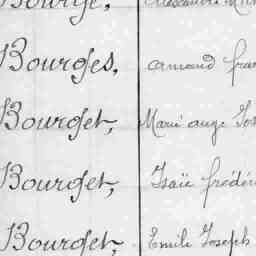 Bourge,
Bourges, armand fran
Bourget, Marie ange Jos
Bourget, Isaïe frédéri
Bourget, Emile Joseph